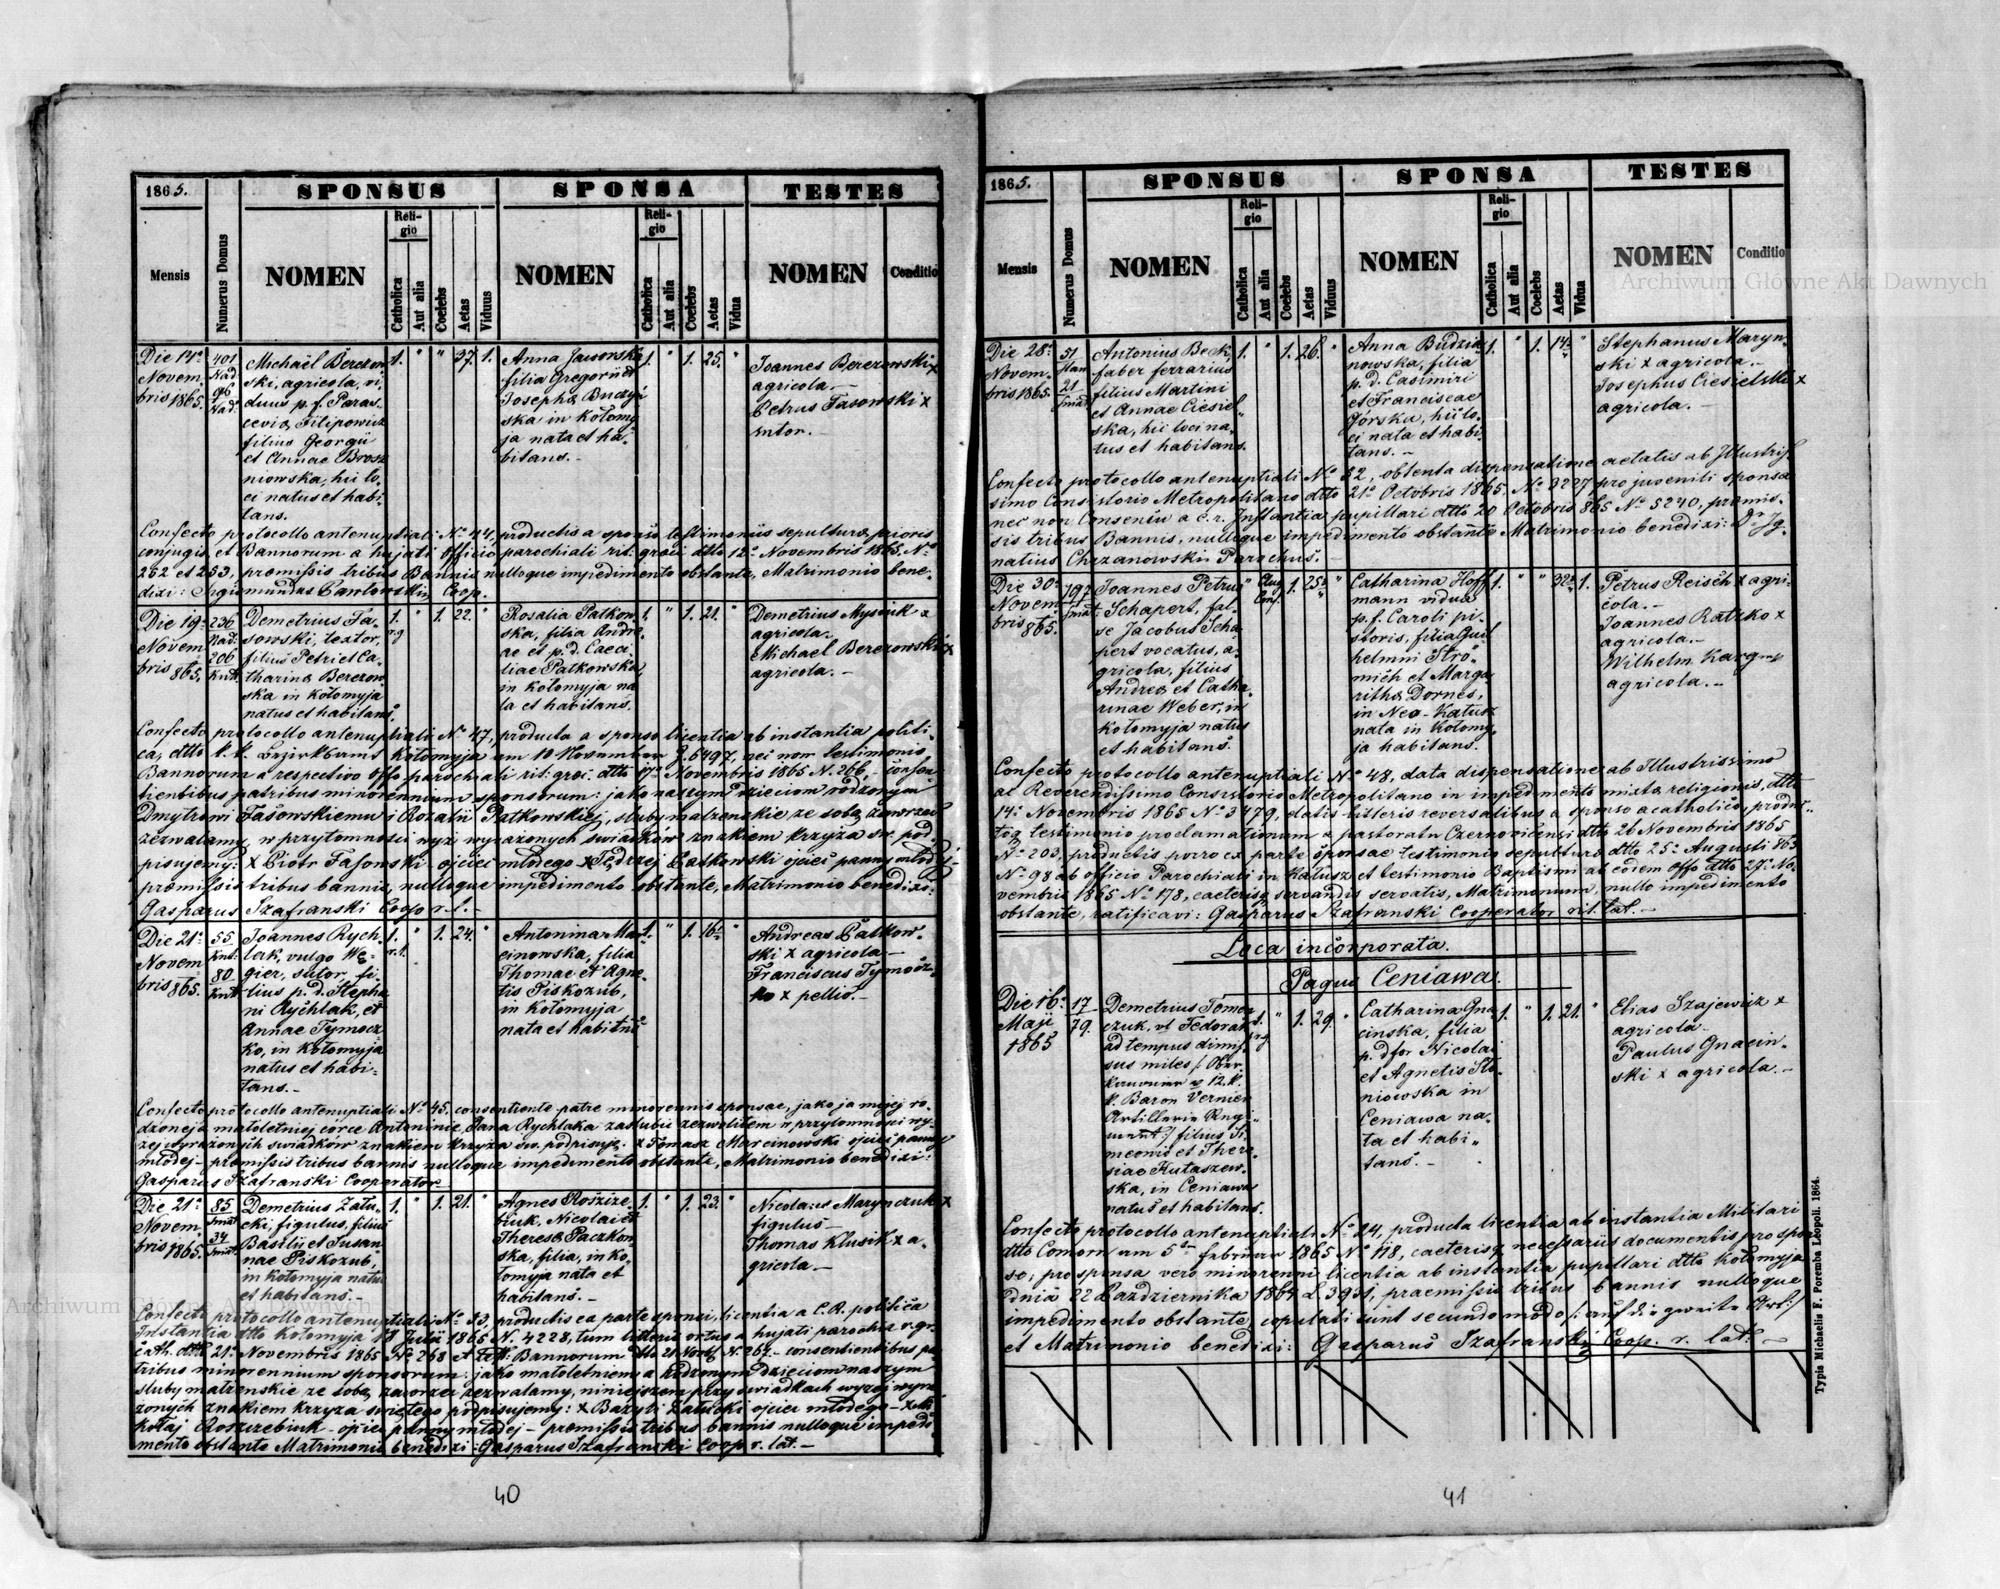 1865.
SPONSUS
SPONSA
TESTES
Mensis
Numerus Domus
NOMEN
Religio
Catholica
Aut alia
Coelebs
Aetas
Viduus
NOMEN
Religio
Catholica
Aut alia
Coelebs
Aetas
Vidua
NOMEN
Conditio
Die 14ª
Novem
bris 1865.
401
Nad.
96
Nad.
Michaël Berezow
ski, agricola, vi
duus p. f. Paras
ceviæ Filipowicz
filius Georgii
et Annae Brosz
niowska, hii lo
ci natus et habi
tans.
1. " " 37. 1.
Anna Jaworska
filia Gregorii et
Josephæ Buczyń
ska in Kołomy
ja nata et ha
bitans.
1. " 1. 25. "
Joannes Berezowski x
agricola.
Petrus Fasowski x
sutor.
Confecto protocollo antenuptiali Nº 44, productis a sponso testimoniis sepulturæ prioris
conjugis, et Bannorum a hujati officio parochiali rit. graci dtto 12ª Novembris 1865. Nº
252 et 253, præmissis tribus Bannis nulloque impedimento obstante, Matrimonio bene-
dixi: Sigismundus Pawlowski Coop.
Die 19ª
Novem
bris 865.
236
Nad.
206
Demetrius Fa
sowski, textor,
filius Petri et Ca
tharinæ Berezow
ska in Kołomyja
natus et habitans.
1. r.g " 1. 22. "
Rosalia Patkow
ska, filia Andre
ae et p. d. Caeci
liae Patkowska,
in Kołomyja na
ta et habitans.
1. " 1. 21. "
Demetrius Mysiuk x
agricola.
Michael Berezowski x
agricola.
Confecto protocollo antenuptiali Nº 47, producta a sponso licentia ab instantia politi
ca, dtto k. k. Bezirksamt Kołomyja am 10 November Z. 6497, nec non testimonio
Bannorum a respectivo offo parochiali rit: grci. dtto 17ª Novembris 1865 N. 266, consen
tientibus patribus minorennium sponsorum: jako naszym dzieciom rodzonym
Dmytrowi Fasowskiemu i Rozalii Patkowskiej, śluby małżenskie ze sobą zawrzeć
zezwalamy, w przytomności wyż wyrażonych świadków znakiem krzyża św. pod
pisujemy: x Piotr Fasowski ojciec młodego x Jędrzej Patkowski ojciec panny młodej
præmissis tribus bannis, nulloque impedimento obstante, Matrimonio benedixi:
Gasparus Szafranski Coop r. l.
Die 21ª
Novem
bris 865.
55
80
Joannes Rych
lak, vulgo Wę
gier, sutor, fi
lius p. d. Stepha
ni Rychlak, et
Annae Tymocz
ko, in Kołomyja
natus et habi
tans.
1. r.l. " 1. 24. "
Antonina Mar
cinowska, filia
Thomae et Agne
tis Piskozub,
in Kołomyja
nata et habitns
1. " 1. 16½ "
Andreas Patkow
ski x agricola
Franciscus Tymocz
ko x pellio.
Confecto protocollo antenuptiali Nº 45. consentiente patre minorennis sponsae, jako ja mojej ro
dzonej a małoletniej córce Antoninie, Jana Rychlaka zaślubić zezwoliłem w przytomności wy
żej wyrażonych świadków znakiem krzyża św. podpisuję: x Tomasz Marcinowski ojciec panny
młodej præmissis tribus bannis nulloque impedimento obstante, Matrimonio benedixi:
Gasparus Szafranski Cooperator
Die 21ª
Novem
bris 1865.
85
34
Demetrius Zału
cki, figulus, filius
Basilii et Susan
nae Piskozub,
in Kołomyja natus
et habitans.
1. " 1. 21. "
Agnes Roszcze
biuk, Nicolai et
Theresæ Paczkow
ska, filia, in Ko
łomyja nata et
habitans.
1. " 1. 23. "
Nicolaus Marynczuk x
figulus
Thomas Klusik x a
gricola.
Confecto protocollo antenuptiali Nº 33, productis ex parte sponsi, licentia a C. R. politica
Instantia dtto Kołomyja 18 Julii 1865 N. 4228, tum litteris ortus a hujati parochia r. gr.
cath. dtto 21ª Novembris 1865 Nº 268 et Test. Bannorum dtto 21 Novb. N. 267. consentientibus pa
tribus minorennium sponsorum: jako małoletniem a rodzonym dzieciom naszym
śluby małżenskie ze sobą zawrzeć zezwalamy, niniejszem przy świadkach wyżej wyra
żonych znakiem krzyża świętego podpisujemy: x Bazyli Załucki ojciec młodego x Mi
kołaj Roszczebiuk ojciec panny młodej præmissis tribus bannis nulloque impedi
mento obstante Matrimonio benedixi: Gasparus Szafranski Coop r. lat.
40
1865.
SPONSUS
SPONSA
TESTES
Mensis
Numerus Domus
NOMEN
Religio
Catholica
Aut alia
Coelebs
Aetas
Viduus
NOMEN
Religio
Catholica
Aut alia
Coelebs
Aetas
Vidua
NOMEN
Conditio
Die 28ª
Novem
bris 1865.
51
Stan
21
Antonius Beck,
faber ferrarius
filius Martini
et Annae Ciesiel
ska, hic loci na
tus et habitans.
1. " 1. 26. "
Anna Budzia
nowska, filia
p. d. Casimiri
et Franciscae
Górska, hii lo
ci nata et habi
tans.
1. " 1. 14½ "
Stephanus Maryn
ski x agricola.
Josephus Ciesielski x
agricola.
Confecto protocollo antenuptiali Nº 32, obtenta dispensatione aetatis ab Illustris
simo Consistorio Metropolitano dtto 21ª Octobris 1865, Nº 3227, pro juvenili sponsa
nec non Consensu a c. r. Instantia pupillari dtto 20 Octobris 865 Nº 5240, præmis
sis tribus Bannis, nulloque impedimento obstante Matrimonio benedixi: Dr Ig
natius Chrzanowski Parochus.
Die 30ª
Novem
bris 865.
797
Joannes Petrus
Schapert, fal
se Jacobus Scha
pert vocatus, a
gricola, filius
Andreæ et Catha
rinae Weber, in
Kołomyja natus
et habitans.
" Aug. Conf. 1. 25½ "
Catharina Hoff
mann vidua
p. f. Caroli pi
storis, filia Guil
helmni Strö
mich et Marga
rithæ Dornes,
in Neo-Kałusz
nata in Kołomy
ja habitans.
1. " " 32½ 1.
Petrus Reisch x agri
cola.
Joannes Ratzko x
agricola.
Wilhelm Karg
agricola.
Confecto protocollo antenuptiali Nº 48, data dispensatione ab Illustrissimo
ac Reverendissimo Consistorio Metropolitano in impedimento mixtæ religionis, dtto
14ª Novembris 1865 Nº 3479, datis litteris reversalibus a sponso acatholico, produc
toq testimonio proclamationum a pastoratu Czernovicensi dtto 26 Novembris 1865
Nº 203, productis porro ex parte sponsae testimonio sepulturæ dtto 25ª Augusti 863
Nº 98 ab officio Parochiali in Kałusz et testimonio Baptismi ab eodem offo dtto 27ª No
vembris 1865 Nº 178, caeterisq servandis servatis, Matrimonium, nullo impedimento
obstante, ratificavi: Gasparus Szafranski Cooperator rit. lat.
Loca incorporata.
Pagus Ceniawa.
Die 16ª
Maji
1865
17
79.
Demetrius Tomen
czuk, vl Fedorak
ad tempus dimis
sus miles /: Ober
kanonier 12. k.
k. Baron Vernier
Artillerie Regi
ment :/ filius Si
meonis et There
siae Hutaszew
ska, in Ceniawa
natus et habitans.
1. r.g " 1. 29. "
Catharina Gna
cinska, filia
p. dfor Nicolai
et Agnetis Sto
niowska in
Ceniawa na
ta et habi
tans.
1. " 1. 21. "
Elias Szajewicz x
agricola
Paulus Gnacin
ski x agricola.
Confecto protocollo antenuptiali Nº 24, producta licentia ab instantia Militari
dtto Comorn am 5ten Februar 1865 Nº 118, caeterisq necessariis documentis pro spon
so; pro sponsa vero minorenni licentia ab instantia pupillari dtto Kołomyja
dnia 22 Października 1864 L. 3931, praemissis tribus bannis nulloque
impedimento obstante, copulati sunt secundo modo /: auf die zweite Art :/
et Matrimonio benedixi: Gasparus Szafranski Coop. r. lat.
Typis Michaelis F. Poremba Leopoli. 1864.
41
Archiwum Główne Akt Dawnych
Archiwum Główne Akt Dawnych